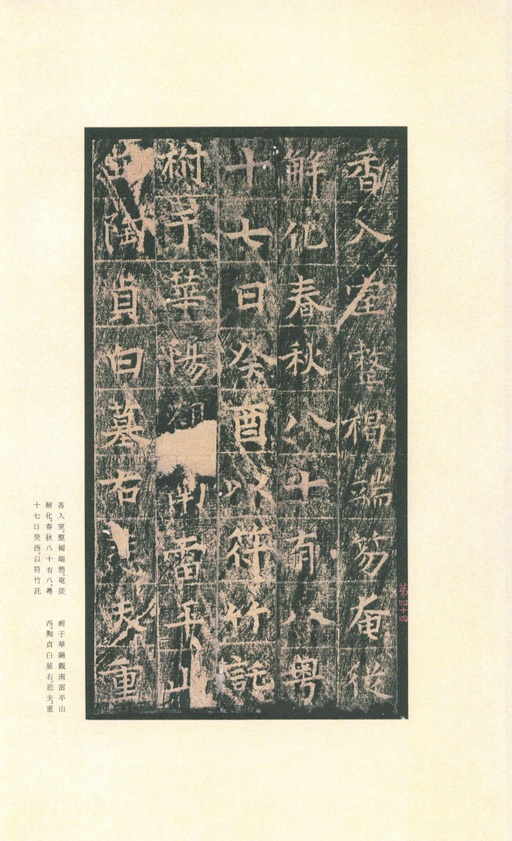 香入室整褐端笏奄從
解化春秋八十有八粤
十七日癸酉以符竹託
祔于華陽觀南雷平山
西陶貞白墓右悲夫重
第四十四
香入室，整褐端笏，奄從
解化，春秋八十有八。粤
十七日癸酉，以符竹託
祔于華陽觀南雷平山
西，陶貞白墓右。悲夫，重